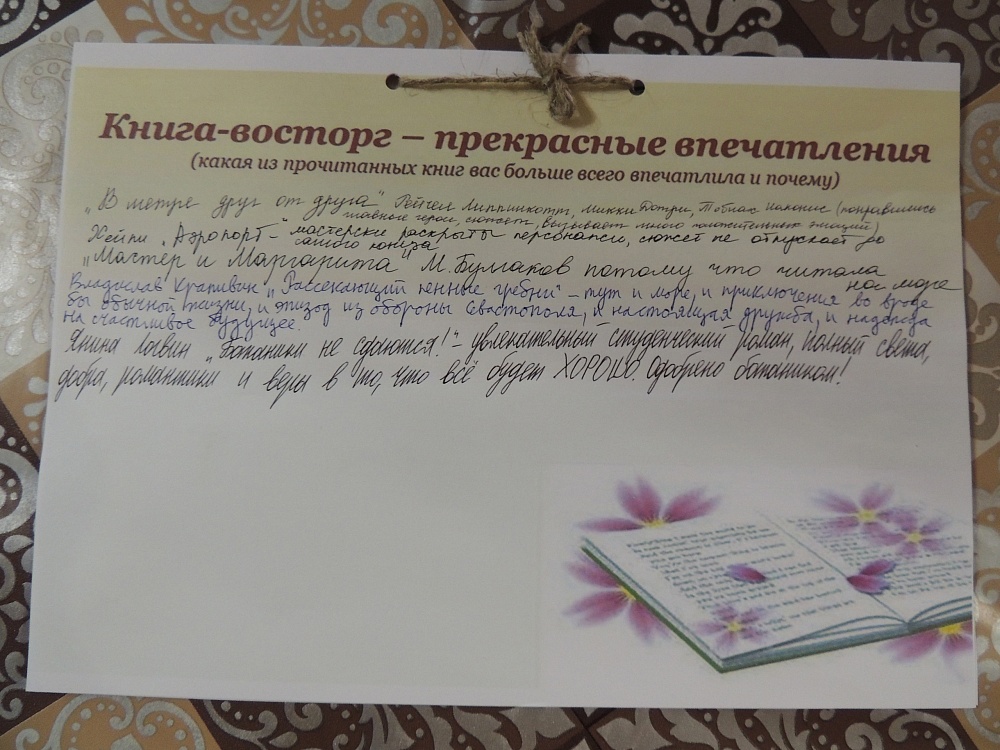 Книга-восторг – прекрасные впечатления
(какая из прочитанных книг вас больше всего впечатлила и почему)
„В метре друг от друга" Рейчел Липпинкотт, Микки Дотри, Тобиас Иаконис (понравились
главные герои, сюжет, вызывает много положительных эмоций)
Хейли „Аэропорт" – мастерски раскрыты персонажи, сюжет не отпускает до
самого конца
„Мастер и Маргарита" М. Булгаков потому что читала
на море
Владислав Крапивин „Рассекающий пенные гребни" – тут и море, и приключения во вроде
бы обычной жизни, и эпизод из обороны Севастополя, и настоящая дружба, и надежда
на счастливое будущее.
Янина Логвин „Ботаники не сдаются!" – увлекательный студенческий роман, полный света,
добра, романтики и веры в то, что всё будет ХОРОШО. Одобрено ботаником!